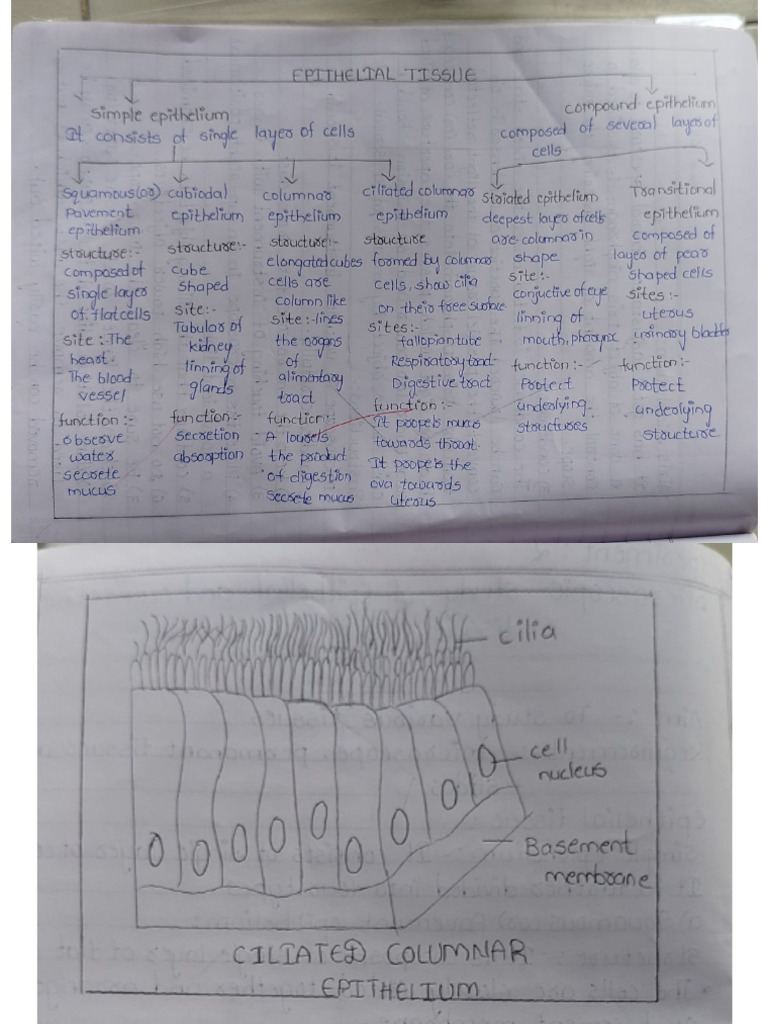 EPITHELIAL TISSUE
Simple epithelium
It consists of single layer of cells
compound epithelium
composed of several layer of
cells
Squamous (or)
Pavement
epithelium
structure:-
composed of
single layer
of flat cells
site: The
heart.
The blood
vessel
function:-
observe
water
secrete
mucus
cubiodal
epithelium
structure:-
cube
shaped
site:-
Tubular of
kidney
linning of
glands
function:-
secretion
absorption
columnar
epithelium
structure:-
elongated cubes
cells are
column like
site:- lines
the organs
of
alimentary
tract
function:-
the product
of digestion
secrete mucus
ciliated columnar
epithelium
structure
formed by columar
cells, show cilia
on their free surface
sites:-
fallopian tube
Respiratory tract
Digestive tract
function:-
It propels mucs
towards throat.
It propels the
ova towards
uterous
striated epithelium
deepest layer of cells
are columnar in
shape
site:-
conjuctive of eye
linning of
mouth, pharynx
function:-
Protect
underlying
structures
Transitional
epithelium
composed of
layer of pear
shaped cells
sites:-
uterous
urinary bladder
function:-
Protect
underlying
structure
cilia
cell
nucleus
Basement
membrane
CILIATED COLUMNAR
EPITHELIUM